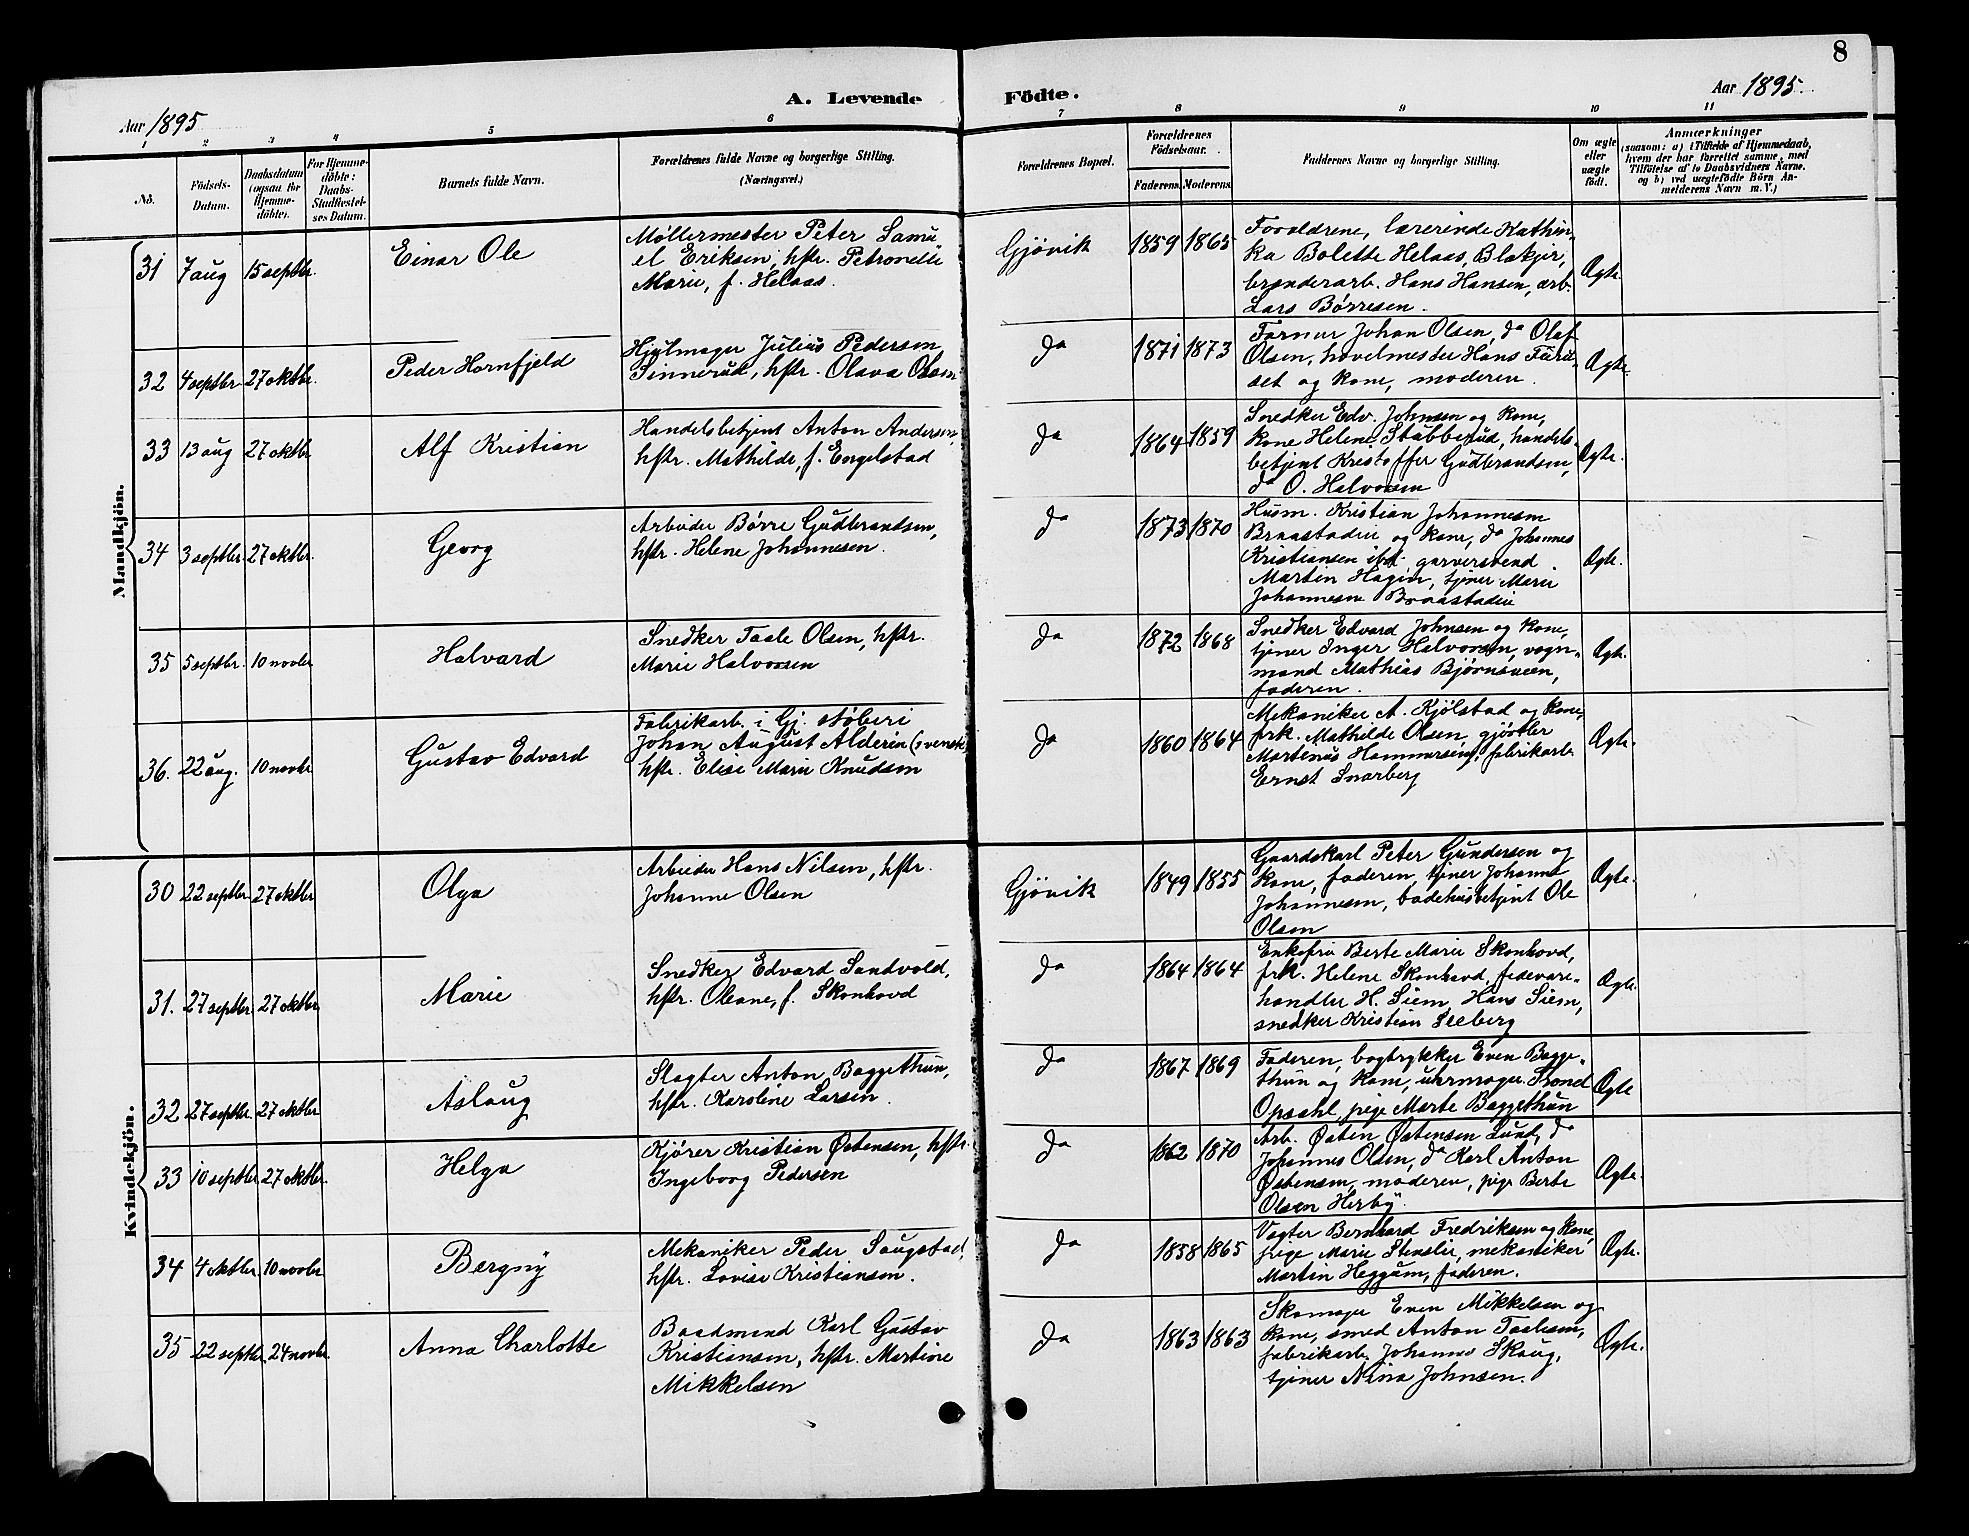 8
Aar 1895
A. Levende Födte.
Aar 1895.
1 2 3 4 5 6 7 8 9 10 11
No.
Födsels-
Datum.
Daabsdatum
(ogsaa for
Hjemme-
döbte).
For Hjemme-
döbte:
Daabs-
Stadfæstel-
ses Datum.
Barnets fulde Navn.
Forældrenes fulde Navne og borgerlige Stilling.
(Næringsvei.)
Forældrenes Bopæl.
Forældrenes
Födselsaar.
Faderens. Moderens.
Faddernes Navne og borgerlige Stilling.
Om ægte
eller
uægte
födt.
Anmærkninger
(saasom: a) i Tilfælde af Hjemmedaab,
hvem der har forrettet samme, med
Tilföielse af to Daabsvidners Navne.
og b) ved uægtefödte Börn An-
melderens Navn m. V.)
Mandkjön.
31 7 aug 15 septbr. Einar Ole
Møllermester Peter Samu-
el Eriksen, hstr. Petronelle
Marie, f. Helaas.
Gjövik 1859 1865
Forældrene, lærerinde Kathin-
ka Bolette Helaas, Blakjer,
brænderarb. Hans Hansen, arb.
Lars Børresen.
Ægte.
32 4 septbr. 27 oktbr. Peder Hornfjeld
Hjulmager Julius Pedersen
Sinnerud, hstr. Olava Olsen
do 1871 1873
Farver Johan Olsen, do Olaf
Olsen, høvelmester Hans Furu-
set og kone, moderen.
Ægte.
33 13 aug 27 oktbr. Alf Kristian
Handelsbetjent Anton Andersen,
hstr. Mathilde, f. Engelstad
do 1864 1859
Snedker Edv. Johnsen og kone,
kone Helene Stabberud, handels-
betjent Kristoffer Gudbrandsen,
do O. Halvorsen
Ægte.
34 3 septbr. 27 oktbr. Georg
Arbeider Børre Gudbrandsen,
hstr. Helene Johannesen.
do 1873 1870
Husm. Kristian Johannesen
Braastadeie og kone, do Johannes
Kristiansen ibd. garversvend
Martin Hagen, tjener Marie
Johannesen Braastadeie
Ægte.
35 5 septbr. 10 novbr Halvard
Snedker Taale Olsen, hstr.
Marie Halvorsen
do 1872 1868
Snedker Edvard Johnsen og kone,
tjener Inger Halvorsen, vogn-
mand Mathias Bjørnsveen,
faderen.
Ægte.
36. 22 aug. 10 novbr Gustav Edvard
Fabrikarb. i Gj. støberi
Johan August Alderin (svensk)
hstr. Elise Marie Knudsen
do 1860 1864
Mekaniker A. Kjølstad og kone,
frk. Mathilde Olsen, gjørtler
Martenus Hammersen, fabrikarb.
Ernst Snarberg
Ægte.
Kvindekjön.
30 22 septbr. 27 oktbr Olga
Arbeider Hans Nilsen, hstr.
Johanne Olsen
Gjövik 1849 1855
Gaardskarl Peter Gundersen og
kone, faderen, tjener Johanne
Johannesen, badehusbetjent Ole
Olsen
Ægte.
31. 27 septbr 27 oktbr Marie
Snedker Edvard Sandvold,
hstr. Oleane, f. Skonhovd
do 1864 1864
Enkefru Berte Marie Skonhovd,
frk. Helene Skonhovd, fedevare-
handler H. Siem, Hans Siem,
snedker Kristian Seeberg
Ægte.
32 27 septbr 27 oktbr. Aslaug
Slagter Anton Baggethun,
hstr. Karoline Larsen.
do 1867 1869
Faderen, bogtrykker Even Bagge-
thun og kone, uhrmager Trond
Opsahl, pige Marte Baggethun
Ægte
33 10 septbr 27 oktbr. Helga
Kjører Kristian Østensen, hstr.
Ingeborg Pedersen
do 1862 1870
Arb. Østen Østensen Lund, do
Johannes Olsen, do Karl Anton
Østensen, moderen, pige Berte
Olsen Herby.
Ægte.
34 4 oktbr. 10 novbr Bergny
Mekaniker Peder Saugstad,
hstr. Lovise Kristiansen.
do 1858 1865
Vogter Bernhard Fredriksen og kone,
pige Marie Stenslie, mekaniker
Martin Heggum, faderen.
Ægte.
35 22 septbr. 24 novbr Anna Charlotte
Baadmand Karl Gustav
Kristiansen, hstr. Martine
Mikkelsen
do 1863 1863
Skomager Even Mikkelsen og
kone, smed Anton Taalesen,
fabrikarb. Johannes Skaug,
tjener Nina Johnsen.
Ægte.